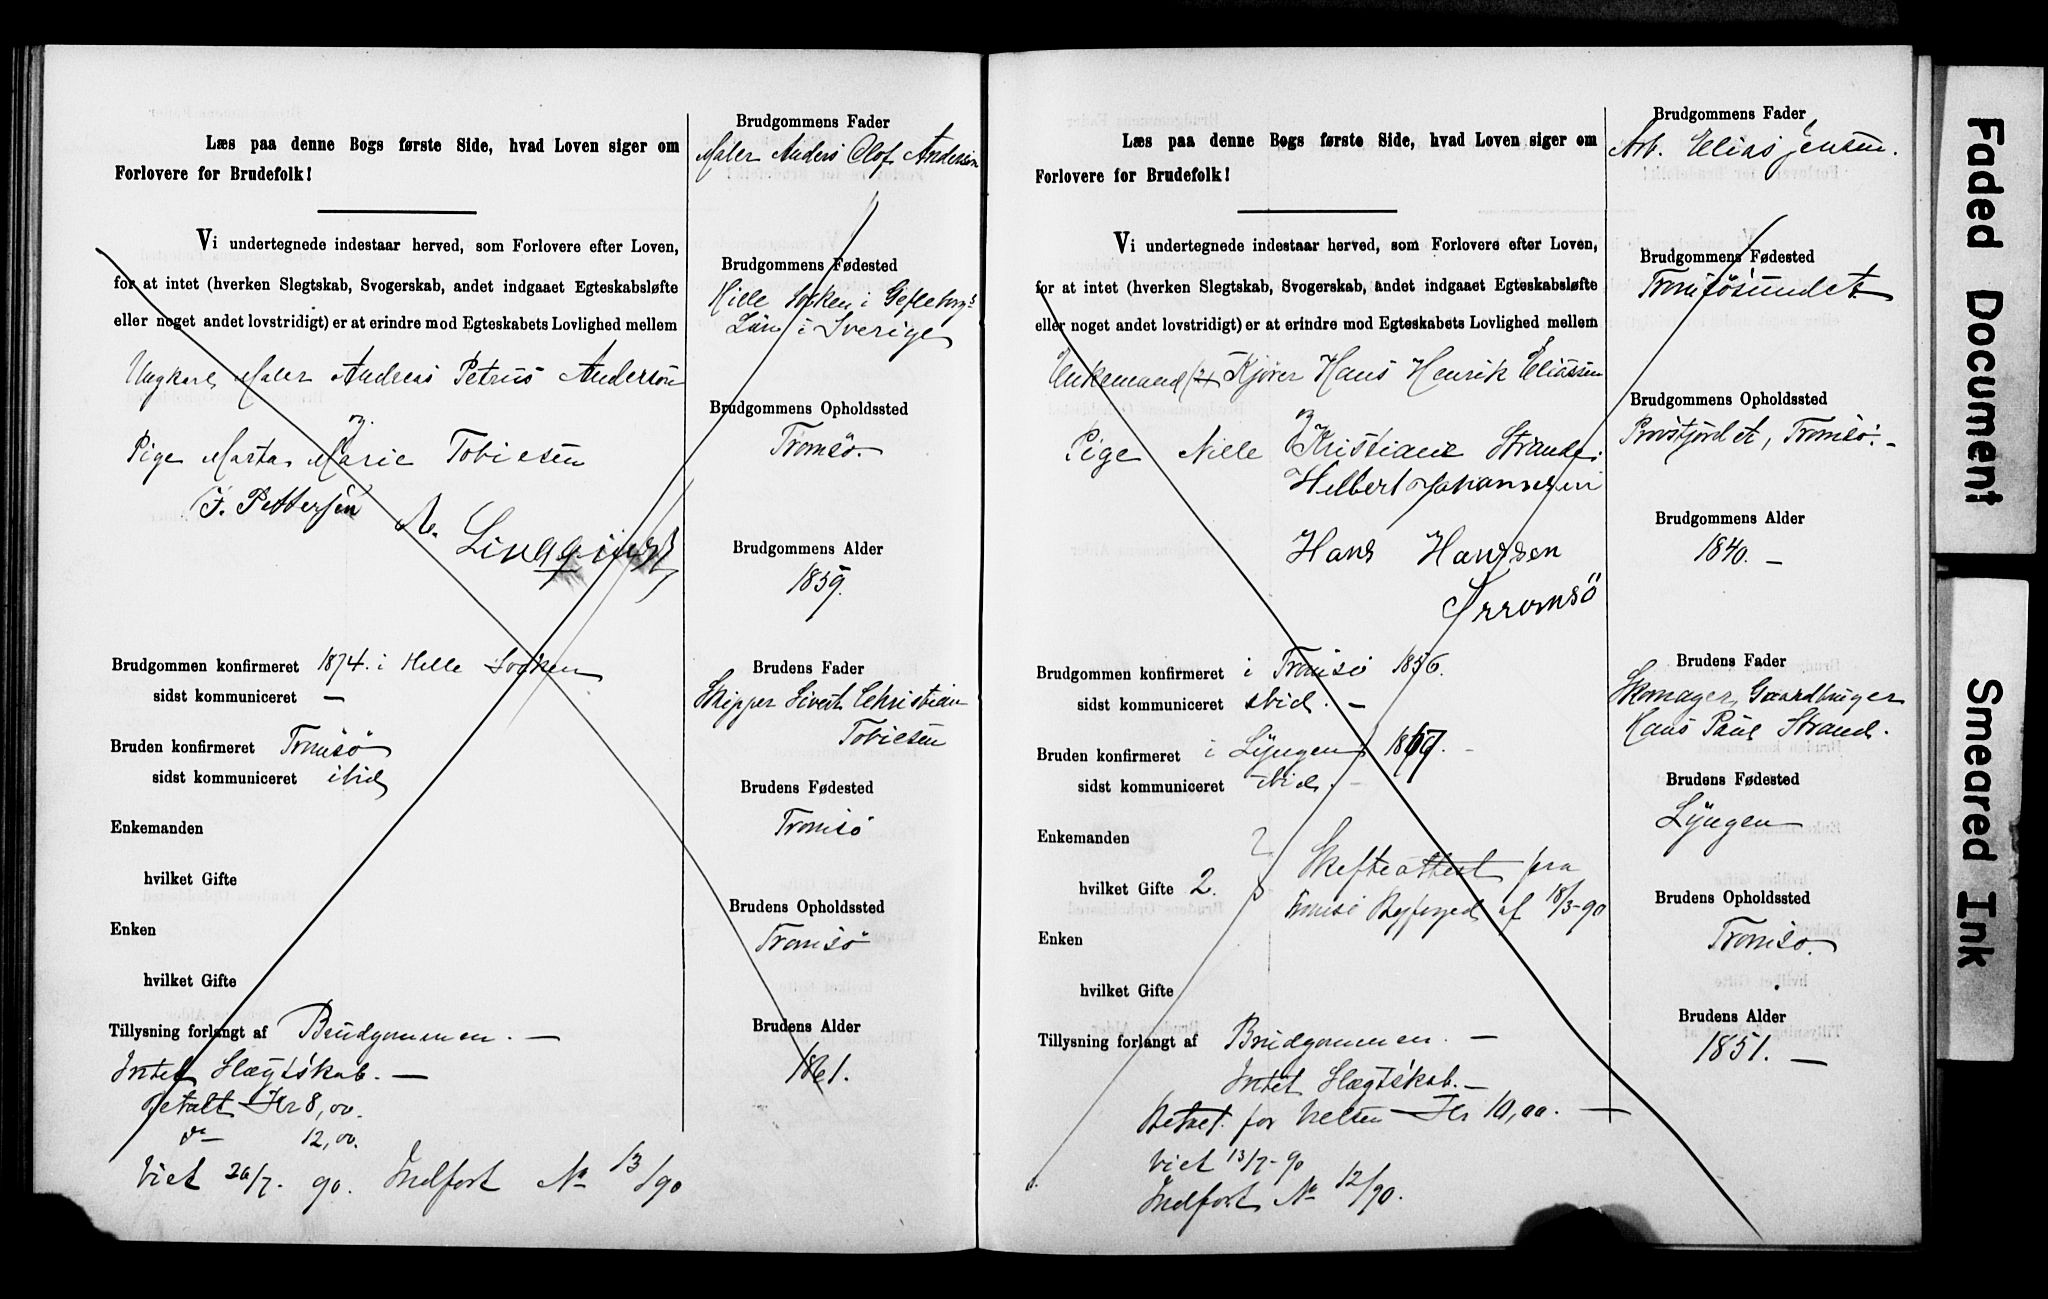 Læs paa denne Bogs første Side, hvad Loven siger om
Forlovere for Brudefolk!
Vi undertegnede indestaar herved, som Forlovere efter Loven,
for at intet (hverken Slegtskab, Svogerskab, andet indgaaet Egteskabsløfte
eller noget andet lovstridigt) er at erindre mod Egteskabets Lovlighed mellem
Ungkarl Maler Andreas Petrus Anderson
og
Pige Marta Marie Tobiesen
J. Pettersen
Brudgommen konfirmeret 1874. i Hille Socken
sidst kommuniceret —
Bruden konfirmeret Tromsö
sidst kommuniceret ibid
Enkemanden
hvilket Gifte
Enken
hvilket Gifte
Tillysning forlangt af Brudgommen. —
Intet Slægtskab. —
Betalt Kr 8,00.
do 12,00.
Viet 26/7. 90. Indført No 13/90
Brudgommens Fader
Maler Anders Olof Anderson
Brudgommens Fødested
Hille Socken i Gefleborgs
Län i Sverige
Brudgommens Opholdssted
Tromsö.
Brudgommens Alder
1859.
Brudens Fader
Skipper Sivert Christian
Tobiesen
Brudens Fødested
Tromsö
Brudens Opholdssted
Tromsö
Brudens Alder
1861.
Læs paa denne Bogs første Side, hvad Loven siger om
Forlovere for Brudefolk!
Vi undertegnede indestaar herved, som Forlovere efter Loven,
for at intet (hverken Slegtskab, Svogerskab, andet indgaaet Egteskabsløfte
eller noget andet lovstridigt) er at erindre mod Egteskabets Lovlighed mellem
Enkemand (2) Kjører Hans Henrik Eliassen
og
Pige Nille Kristiane Strand.
Hilbert Johannesen
Hans Hanssen
Tromsö
Brudgommen konfirmeret i Tromsö 1856.
sidst kommuniceret ibid. —
Bruden konfirmeret i Lyngen 1867. -
sidst kommuniceret ibid. -
Enkemanden
hvilket Gifte 2. Skifteattest fra
Tromsö Byfoged af 18/3-90
Enken
hvilket Gifte
Tillysning forlangt af Brudgommen. —
Intet Slægtskab. —
Betalt for Vielsen Kr 10,00. —
Viet 13/7-90
Indført No 12/90.
Brudgommens Fader
Arb. Elias Jensen.
Brudgommens Fødested
Tromsösundet
Brudgommens Opholdssted
Provstjordet, Tromsö. -
Brudgommens Alder
1840. —
Brudens Fader
Skomager, Gaardbruger
Hans Paul Strand.
Brudens Fødested
Lyngen
Brudens Opholdssted
Tromsö.
Brudens Alder
1851. —
Faded Document
Smeared Ink